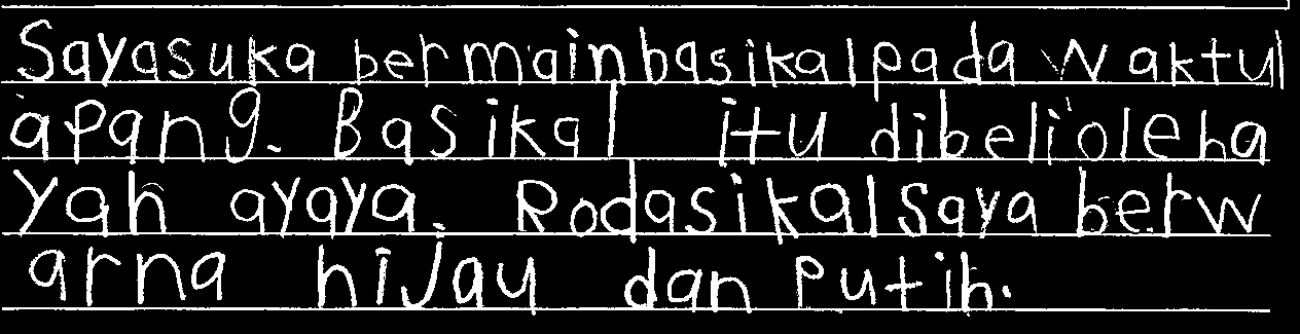 Sayasuka bermainbasikalpada waktul
apang. Basikal itu dibelioleha
yah ayaya. Rodasikalsaya berw
arna hijau dan Putih.